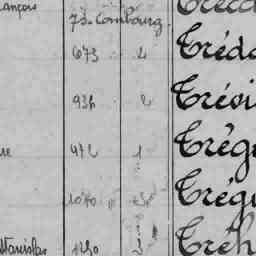 ançois
7d. Combourg.
673 2 Tréd
936 2 Trési
472 1 Trég
1040 Trég
Stanislas 1290 2 Tréh